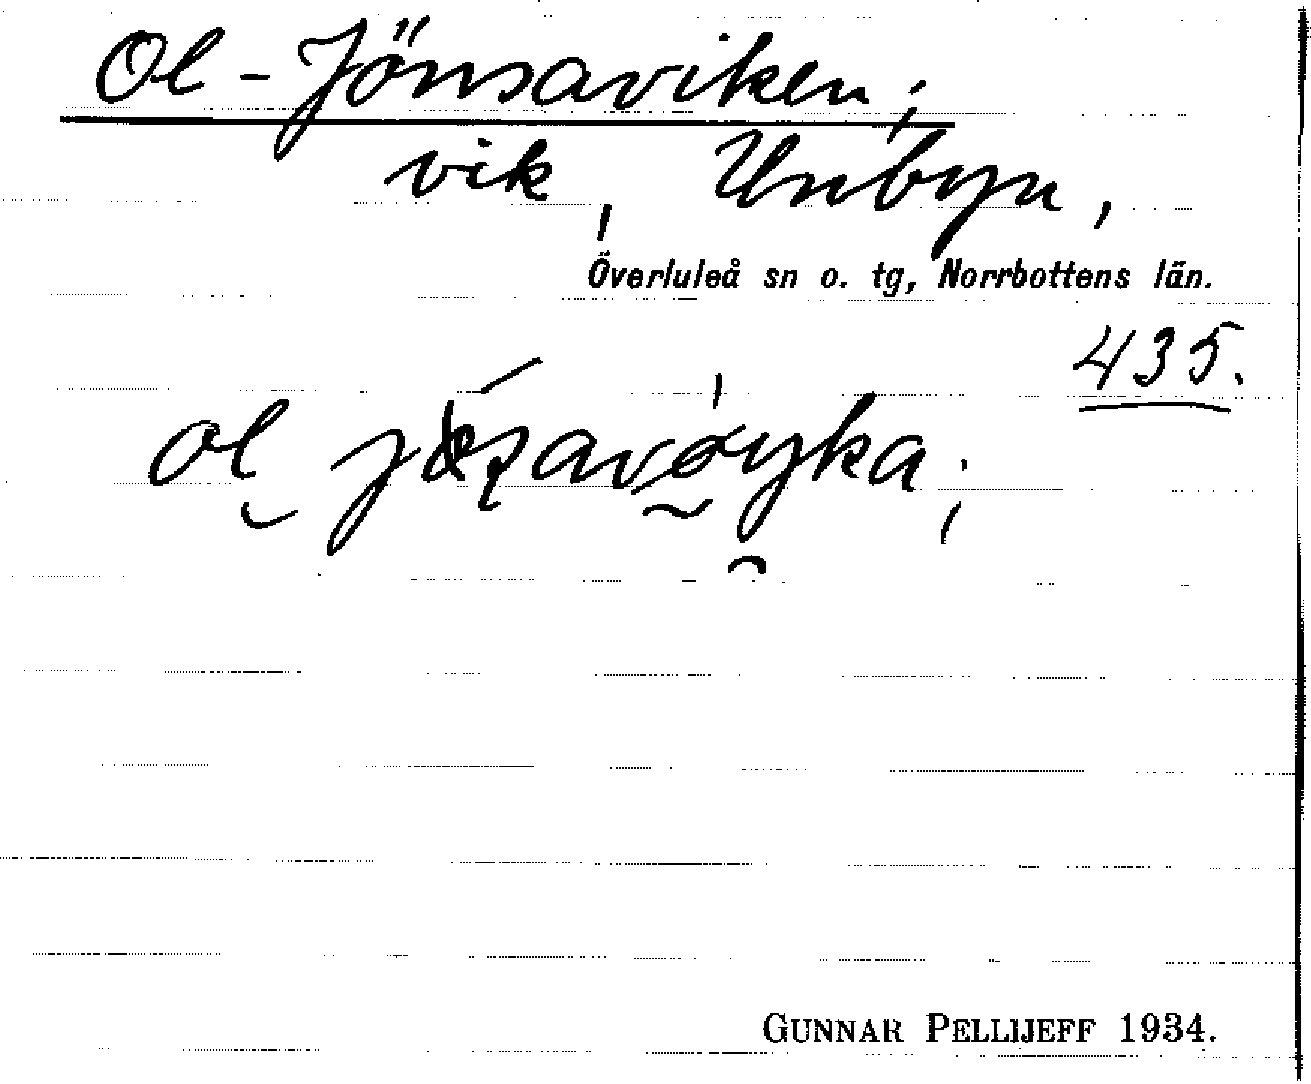 Ol-Jönsaviken;
vik, Unbyn,
Överluleå sn o. tg, Norrbottens län.
435.
ol
GUNNAR PELLIJEFF 1934.